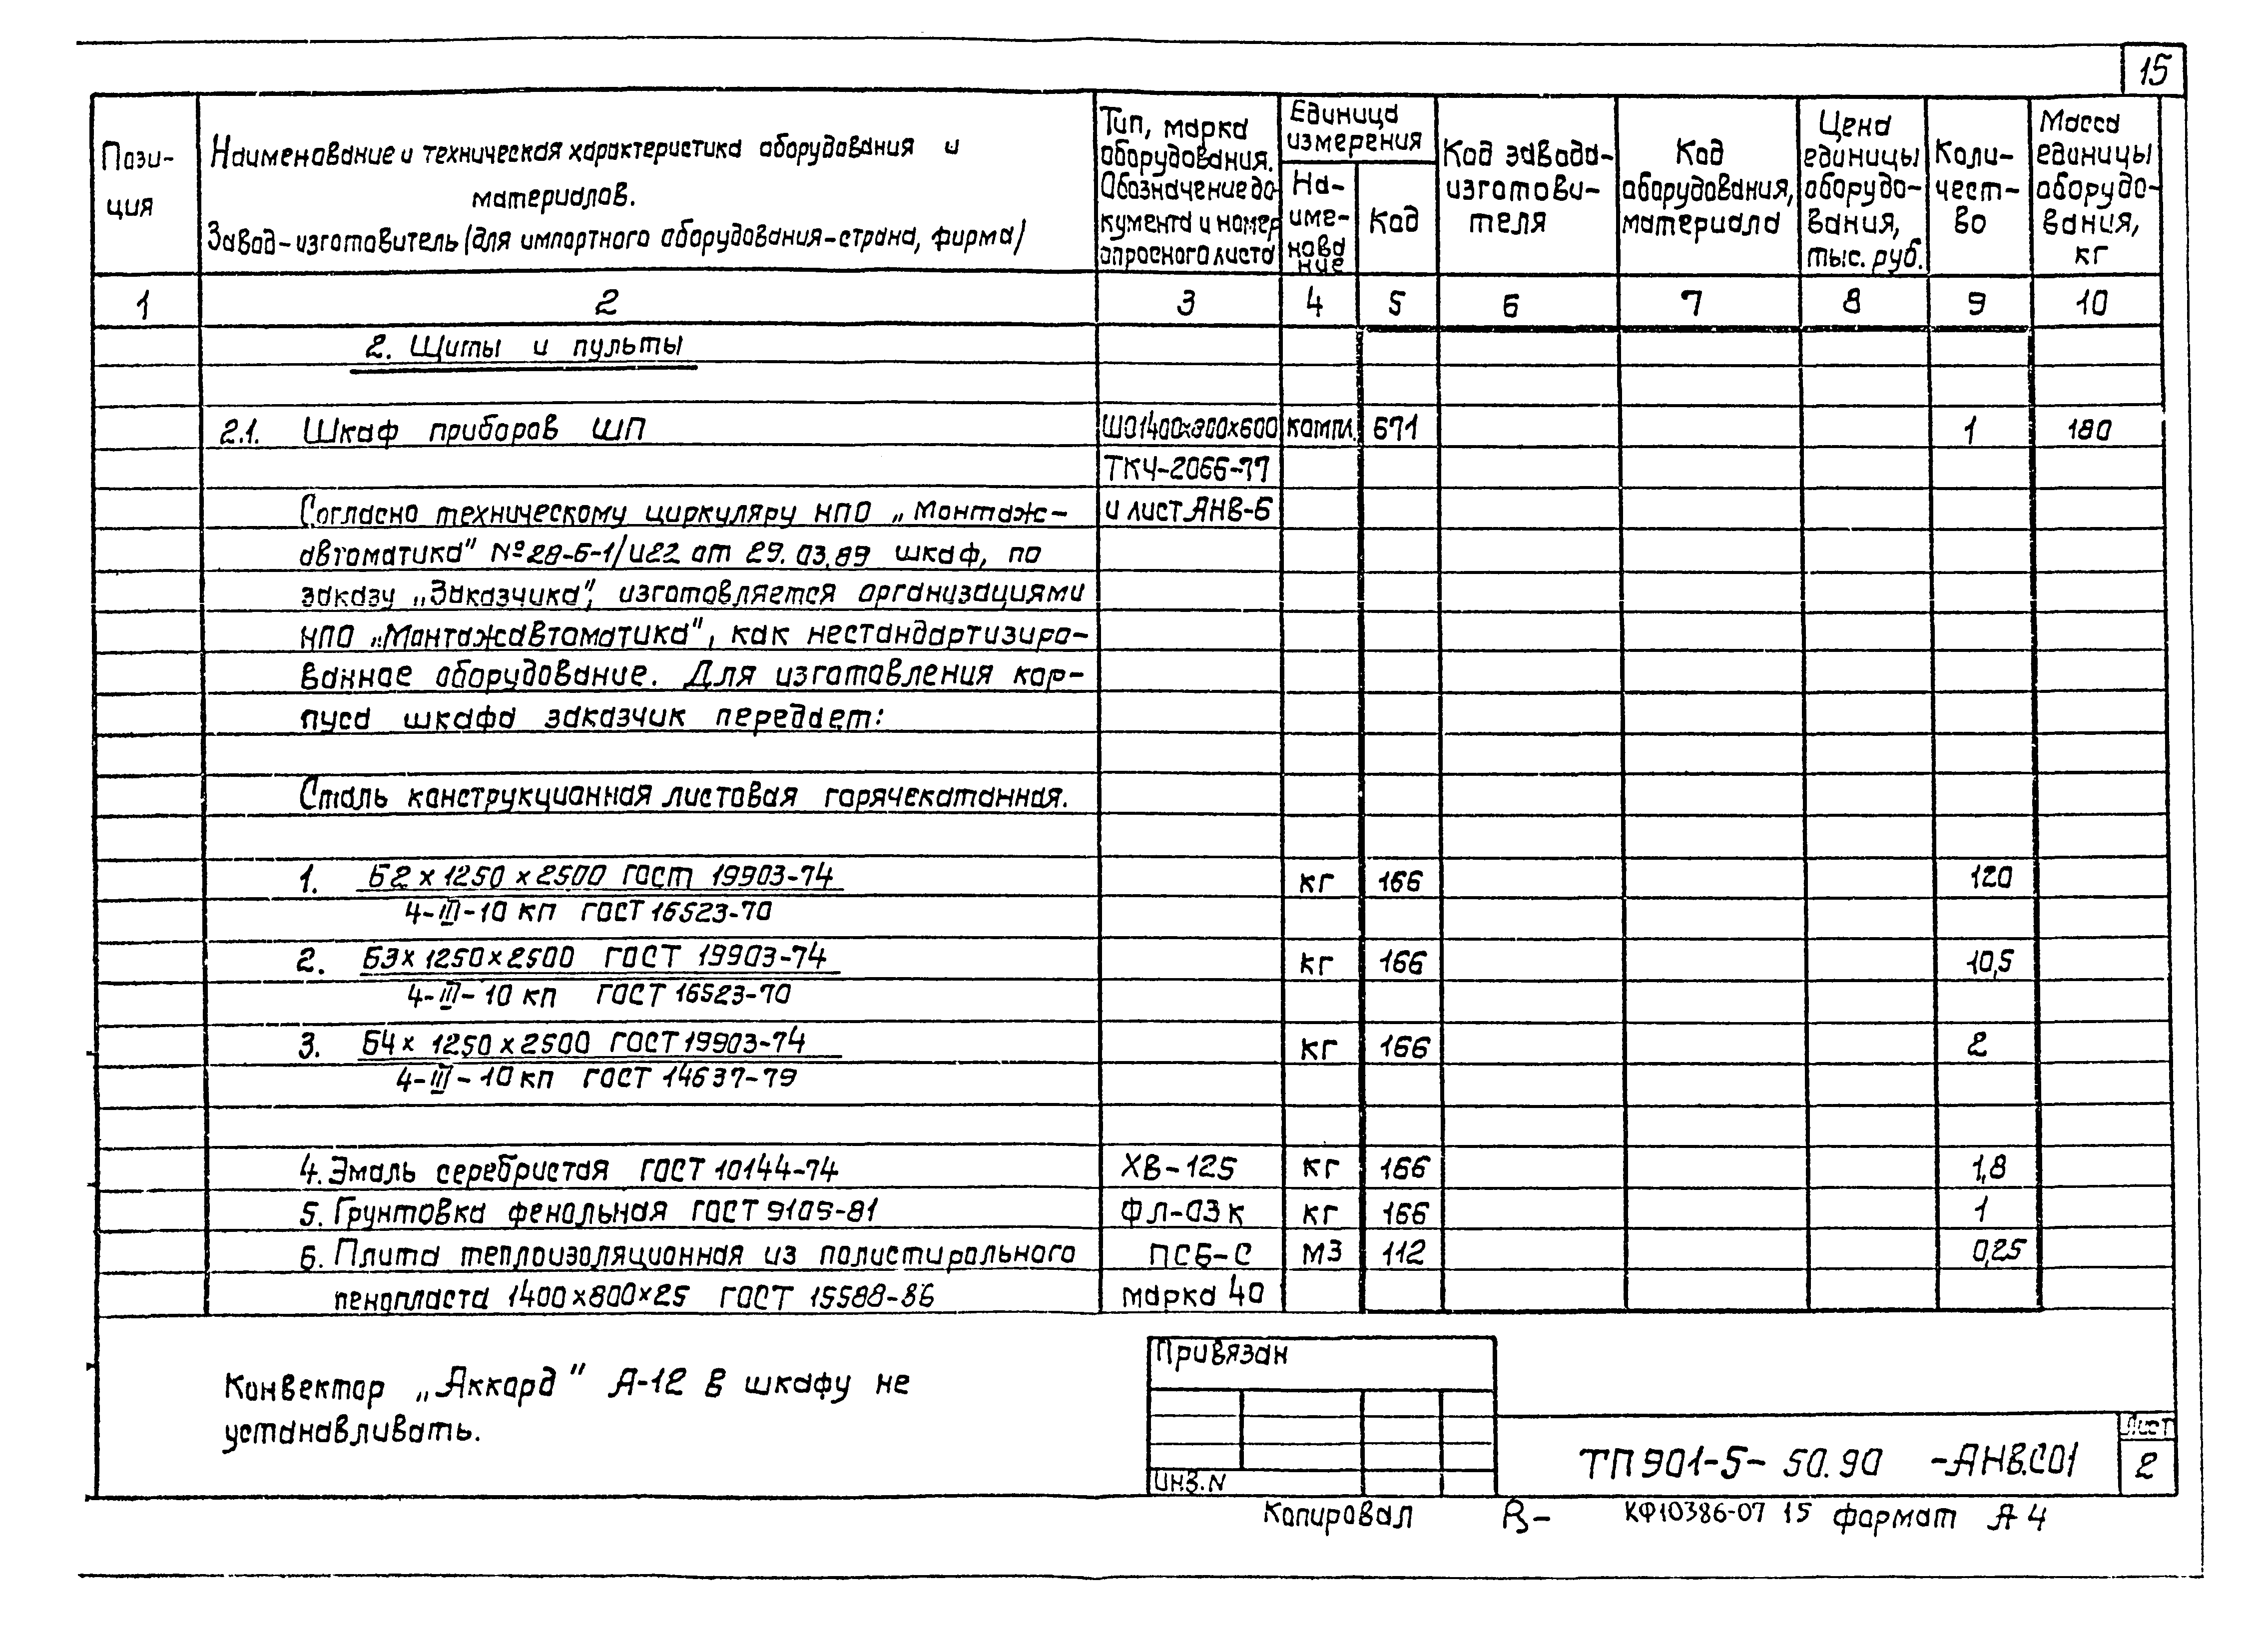 15
Пози-
ция
Наименование и техническая характеристика оборудования и
материалов.
Завод-изготовитель (для импортного оборудования-страна, фирма)
Тип, марка
оборудования.
Обозначение до-
кумента и номер
опросного листа
Единица
измерения
На-
име-
нова
ние
Код
Код завода-
изготови-
теля
Код
оборудования,
материала
Цена
единицы
оборудо-
вания,
тыс. руб.
Коли-
чест-
во
Масса
единицы
оборудо-
вания,
кг
1 2 3 4 5 6 7 8 9 10
2. Щиты и пульты
2.1. Шкаф приборов ШП ШО1400х800х600 компл. 671 1 180
ТКЧ-2066-77
Согласно техническому циркуляру НПО „Монтаж- и лист АНВ-6
автоматика" №28-6-1/и22 от 29.03.89 шкаф, по
заказу „Заказчика", изготовляется организациями
НПО „Монтажавтоматика", как нестандартизиро-
ванное оборудование. Для изготовления кор-
пуса шкафа заказчик передает:
Сталь конструкционная листовая горячекатанная.
1. Б2 х 1250 х 2500 ГОСТ 19903-74 кг 166 120
4-III-10 кп ГОСТ 16523-70
2. Б3х1250х2500 ГОСТ 19903-74 кг 166 10,5
4-III-10 кп ГОСТ 16523-70
3. Б4х 1250х2500 ГОСТ 19903-74 кг 166 2
4-III-10 кп ГОСТ 14637-79
4. Эмаль серебристая ГОСТ 10144-74 ХВ-125 кг 166 1,8
5. Грунтовка фенольная ГОСТ 9109-81 ФЛ-03к кг 166 1
6. Плита теплоизоляционная из полистирольного ПСБ-С м3 112 0,25
пенопласта 1400х800х25 ГОСТ 15588-86 марка 40
Конвектор „Аккорд" А-12 в шкафу не
устанавливать.
Привязан
ИНВ.N
ТП 901-5-50.90 -АНВ.СО1
Лист
2
Копировал КФ10386-07 15 формат А4